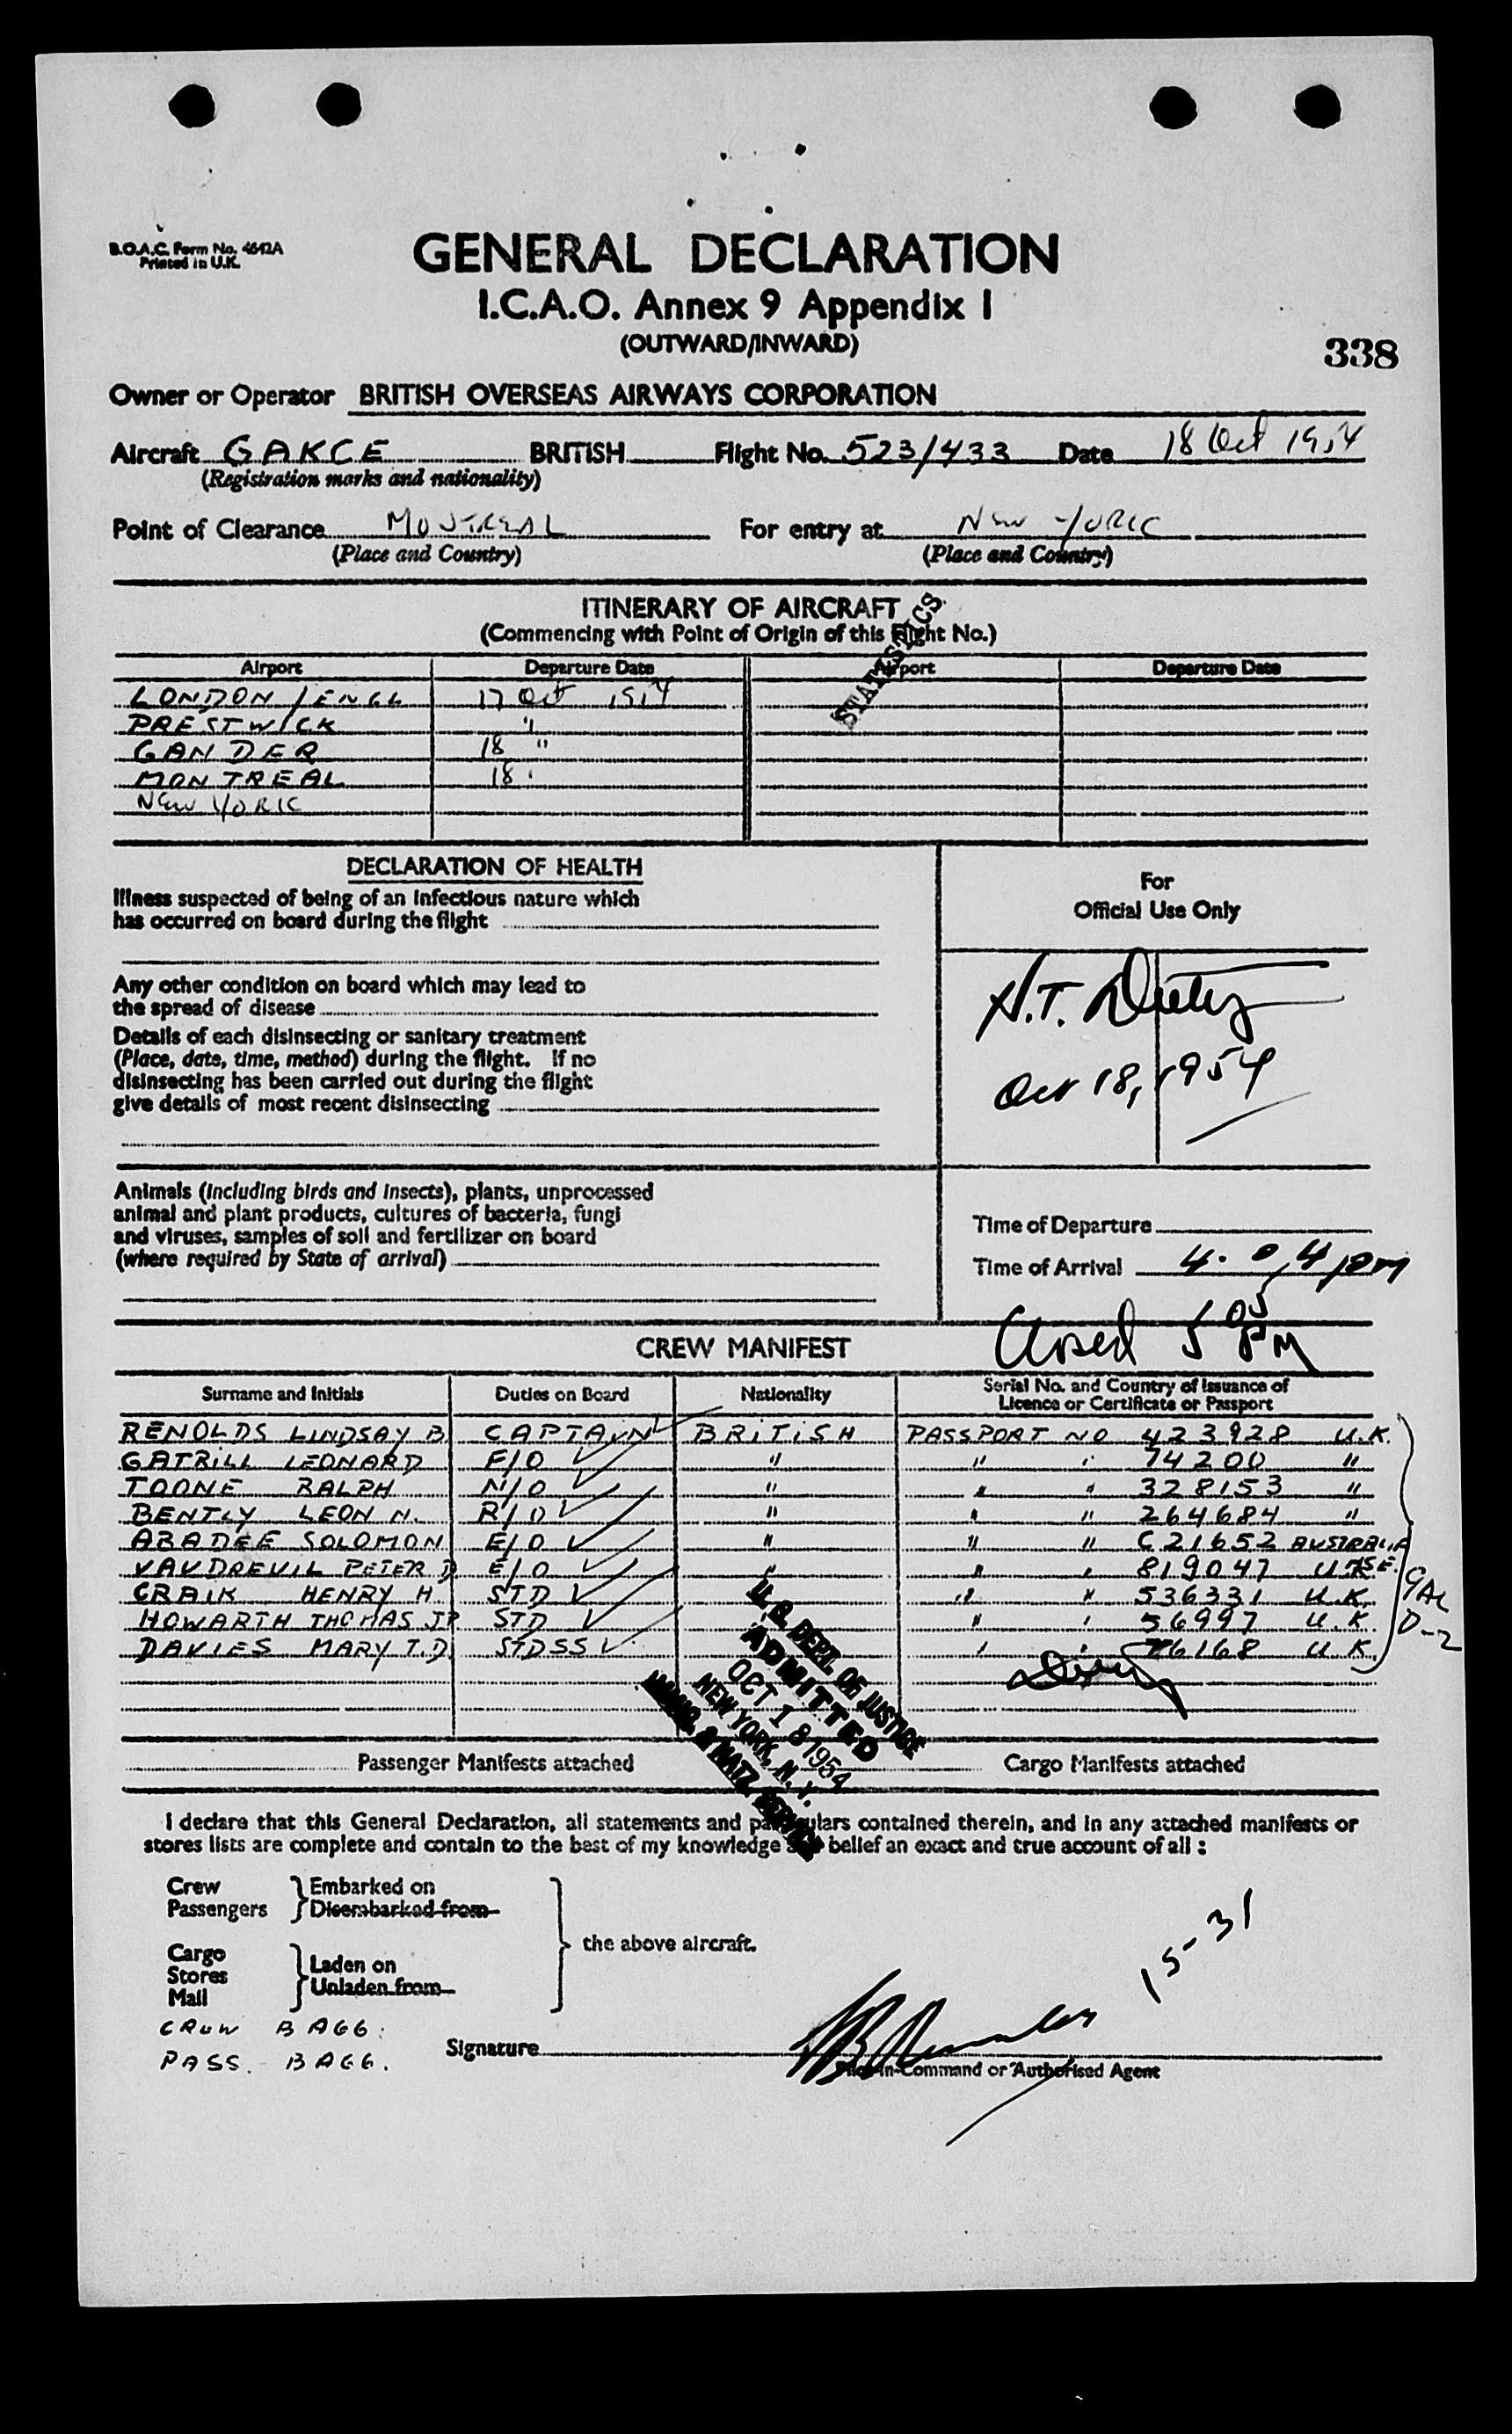 B.O.A.C. Form No. 4642A
Printed in U.K.
GENERAL DECLARATION
I.C.A.O. Annex 9 Appendix I
(OUTWARD/INWARD)
338
Owner or Operator BRITISH OVERSEAS AIRWAYS CORPORATION
Aircraft GAKCE BRITISH Flight No. 523/433 Date 18 Oct 1954
(Registration marks and nationality)
Point of Clearance MONTREAL For entry at NEW YORK
(Place and Country) (Place and Country)
ITINERARY OF AIRCRAFT
(Commencing with Point of Origin of this Flight No.)
STATISTICS
Airport Departure Date Airport Departure Date
LONDON / ENGL 17 Oct 1954
PRESTWICK "
GANDER 18 "
MONTREAL 18 "
NEW YORK
DECLARATION OF HEALTH
Illness suspected of being of an infectious nature which
has occurred on board during the flight
Any other condition on board which may lead to
the spread of disease
Details of each disinsecting or sanitary treatment
(Place, date, time, method) during the flight. If no
disinsecting has been carried out during the flight
give details of most recent disinsecting
For
Official Use Only
Oct 18, 1954
Animals (including birds and insects), plants, unprocessed
animal and plant products, cultures of bacteria, fungi
and viruses, samples of soil and fertilizer on board
(where required by State of arrival)
Time of Departure
Time of Arrival 4.04 pm
Closed 5 05 PM
CREW MANIFEST
Surname and Initials Duties on Board Nationality Serial No. and Country of Issuance of
Licence or Certificate or Passport
RENOLDS LINDSAY B CAPTAIN BRITISH PASSPORT NO 423928 U.K.
GATRILL LEONARD F/O " " " 74200 "
TOONE RALPH N/O " " " 328153 "
BENTLY LEON N. R/O " " " 264684 "
ABADEE SOLOMON E/O " " " C21652 AUSTRALIA
VAUDREVIL PETER D E/O " " " 819047
CRAIK HENRY H. STD " " 536331 U.K.
HOWARTH THOMAS JP STD " " 56997 U.K
DAVIES MARY T.D. STDSS " " 76168 U.K.
GAL
D-2
U.S. DEPT. OF JUSTICE
ADMITTED
OCT 18 1954
NEW YORK, N.Y.
IMMIG. & NATZ. SERVICE
Passenger Manifests attached Cargo Manifests attached
I declare that this General Declaration, all statements and particulars contained therein, and in any attached manifests or
stores lists are complete and contain to the best of my knowledge and belief an exact and true account of all :
Crew Embarked on
Passengers Disembarked from
the above aircraft.
Cargo
Stores Laden on
Mail Unladen from
15-31
CREW BAGG.
PASS. BAGG.
Signature
Pilot-in-Command or Authorised Agent